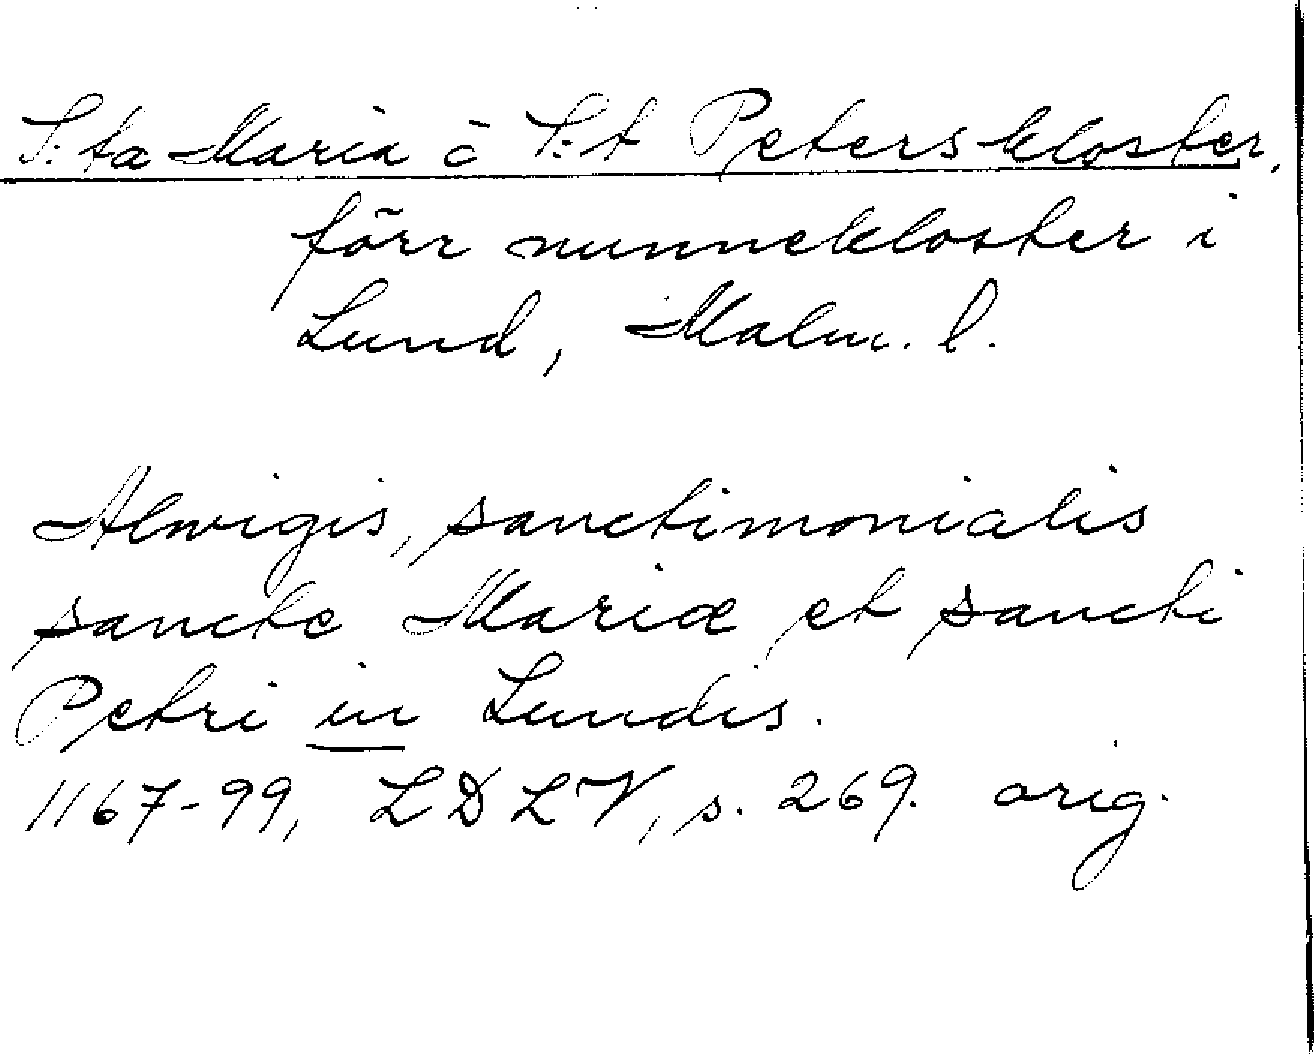 S:ta Maria o S:t Peters kloster,
förr nunnekloster i
Lund, Malm. l.
Alwigis, sanctimonialis
sancte Mariæ et sancti
Petri in Lundis.
1167-99, LDLV, s. 269. orig.